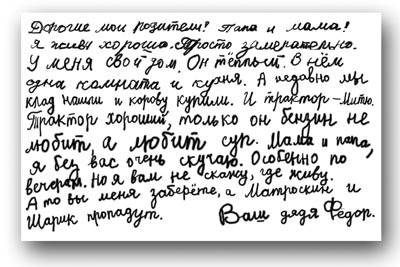 Дорогие мои родители! Папа и мама!
Я живу хорошо. Просто замечательно.
У меня свой дом. Он тёплый. В нём
одна комната и кухня. А недавно мы
клад нашли и корову купили. И трактор – Митю.
Трактор хороший, только он бензин не
любит, а любит суп. Мама и папа,
я без вас очень скучаю. Особенно по
вечерам. Но я вам не скажу, где живу.
А то вы меня заберёте, а Матроскин и
Шарик пропадут. Ваш дядя Фёдор.